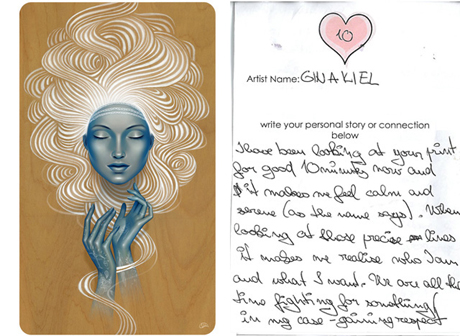 10
Artist Name: GINA KIEL
write your personal story or connection
below
I have been looking at your print
for good 10 minutes now and
it makes me feel calm and
serene (as the name says). When
looking at those precise lines
it makes me realise who I am
and what I want. We are all the
time fighting for something/
in my case - gaining respect